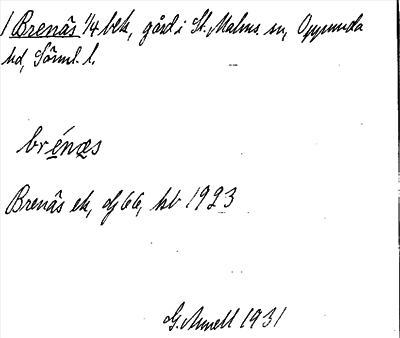 1 Brenäs 1/4 bek, gård i St. Malms sn, Oppunda
hd, Söml. l.
brénæs
Brenäs ek, dj 66, kb 1923
G. Annell 1931